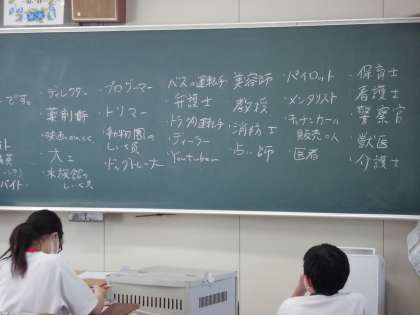 ・保育士
・看護士
・警察官
・獣医
・介護士
・パイロット
・メンタリスト
販売の人
・医者
美容師
教授
・消防士
・占い師
・バスの運転手
・弁護士
・トラック運転手
・ディーラー
・Youtuber
・プロゲーマー
・トリマー
・動物園の
しいく員
・ドッグトレーナー
・ディレクター
・薬剤師
・大工
・水族館の
しいく員
です。
バイト